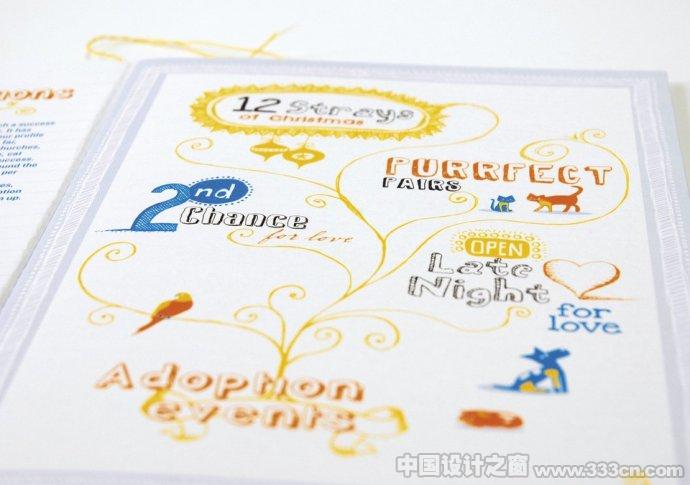 12 Strays
of Christmas
PURRFECT
PAIRS
2nd
Chance
for love
OPEN
Late
Night
for
love
Adoption
events
ions
a success
It has
profile
far.
churches,
cat
success.
around the
per
option
up.
中国设计之窗 www.333cn.com